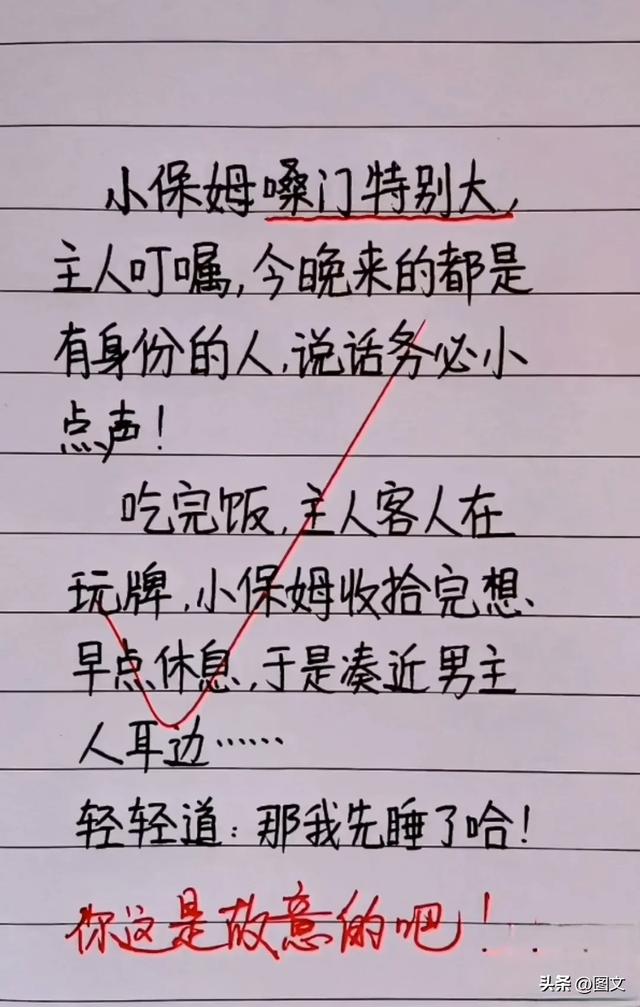 小保姆嗓门特别大,
主人叮嘱,今晚来的都是
有身份的人,说话务必小
点声!
吃完饭,主人客人在
玩牌,小保姆收拾完想
早点休息,于是凑近男主
人耳边……
轻轻道:那我先睡了哈!
你这是故意的吧!...
头条 @图文